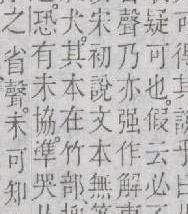 得其說乎曰
疑可也假云必
聲乃亦强作解
宋初說文本無
犬其本在竹部
恐有未協準哭
之省聲未可知